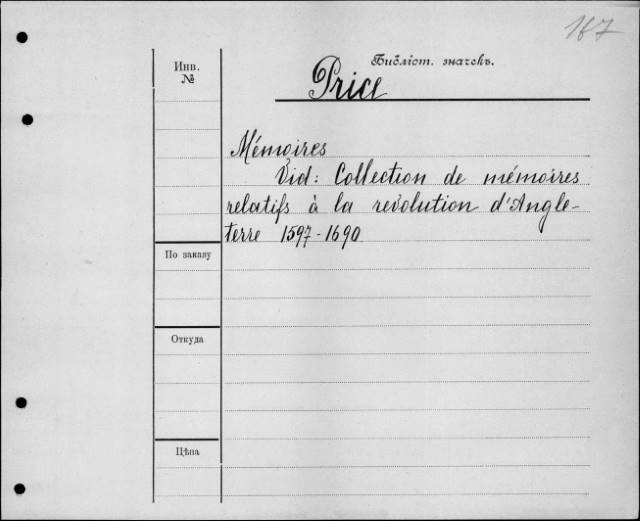 167
Инв.
№
Библіот. значекъ.
Price
Mémoires
Vid: Collection de mémoires
relatifs à la revolution d'Angle-
terre 1597-1690
По заказу
Откуда
Цѣна